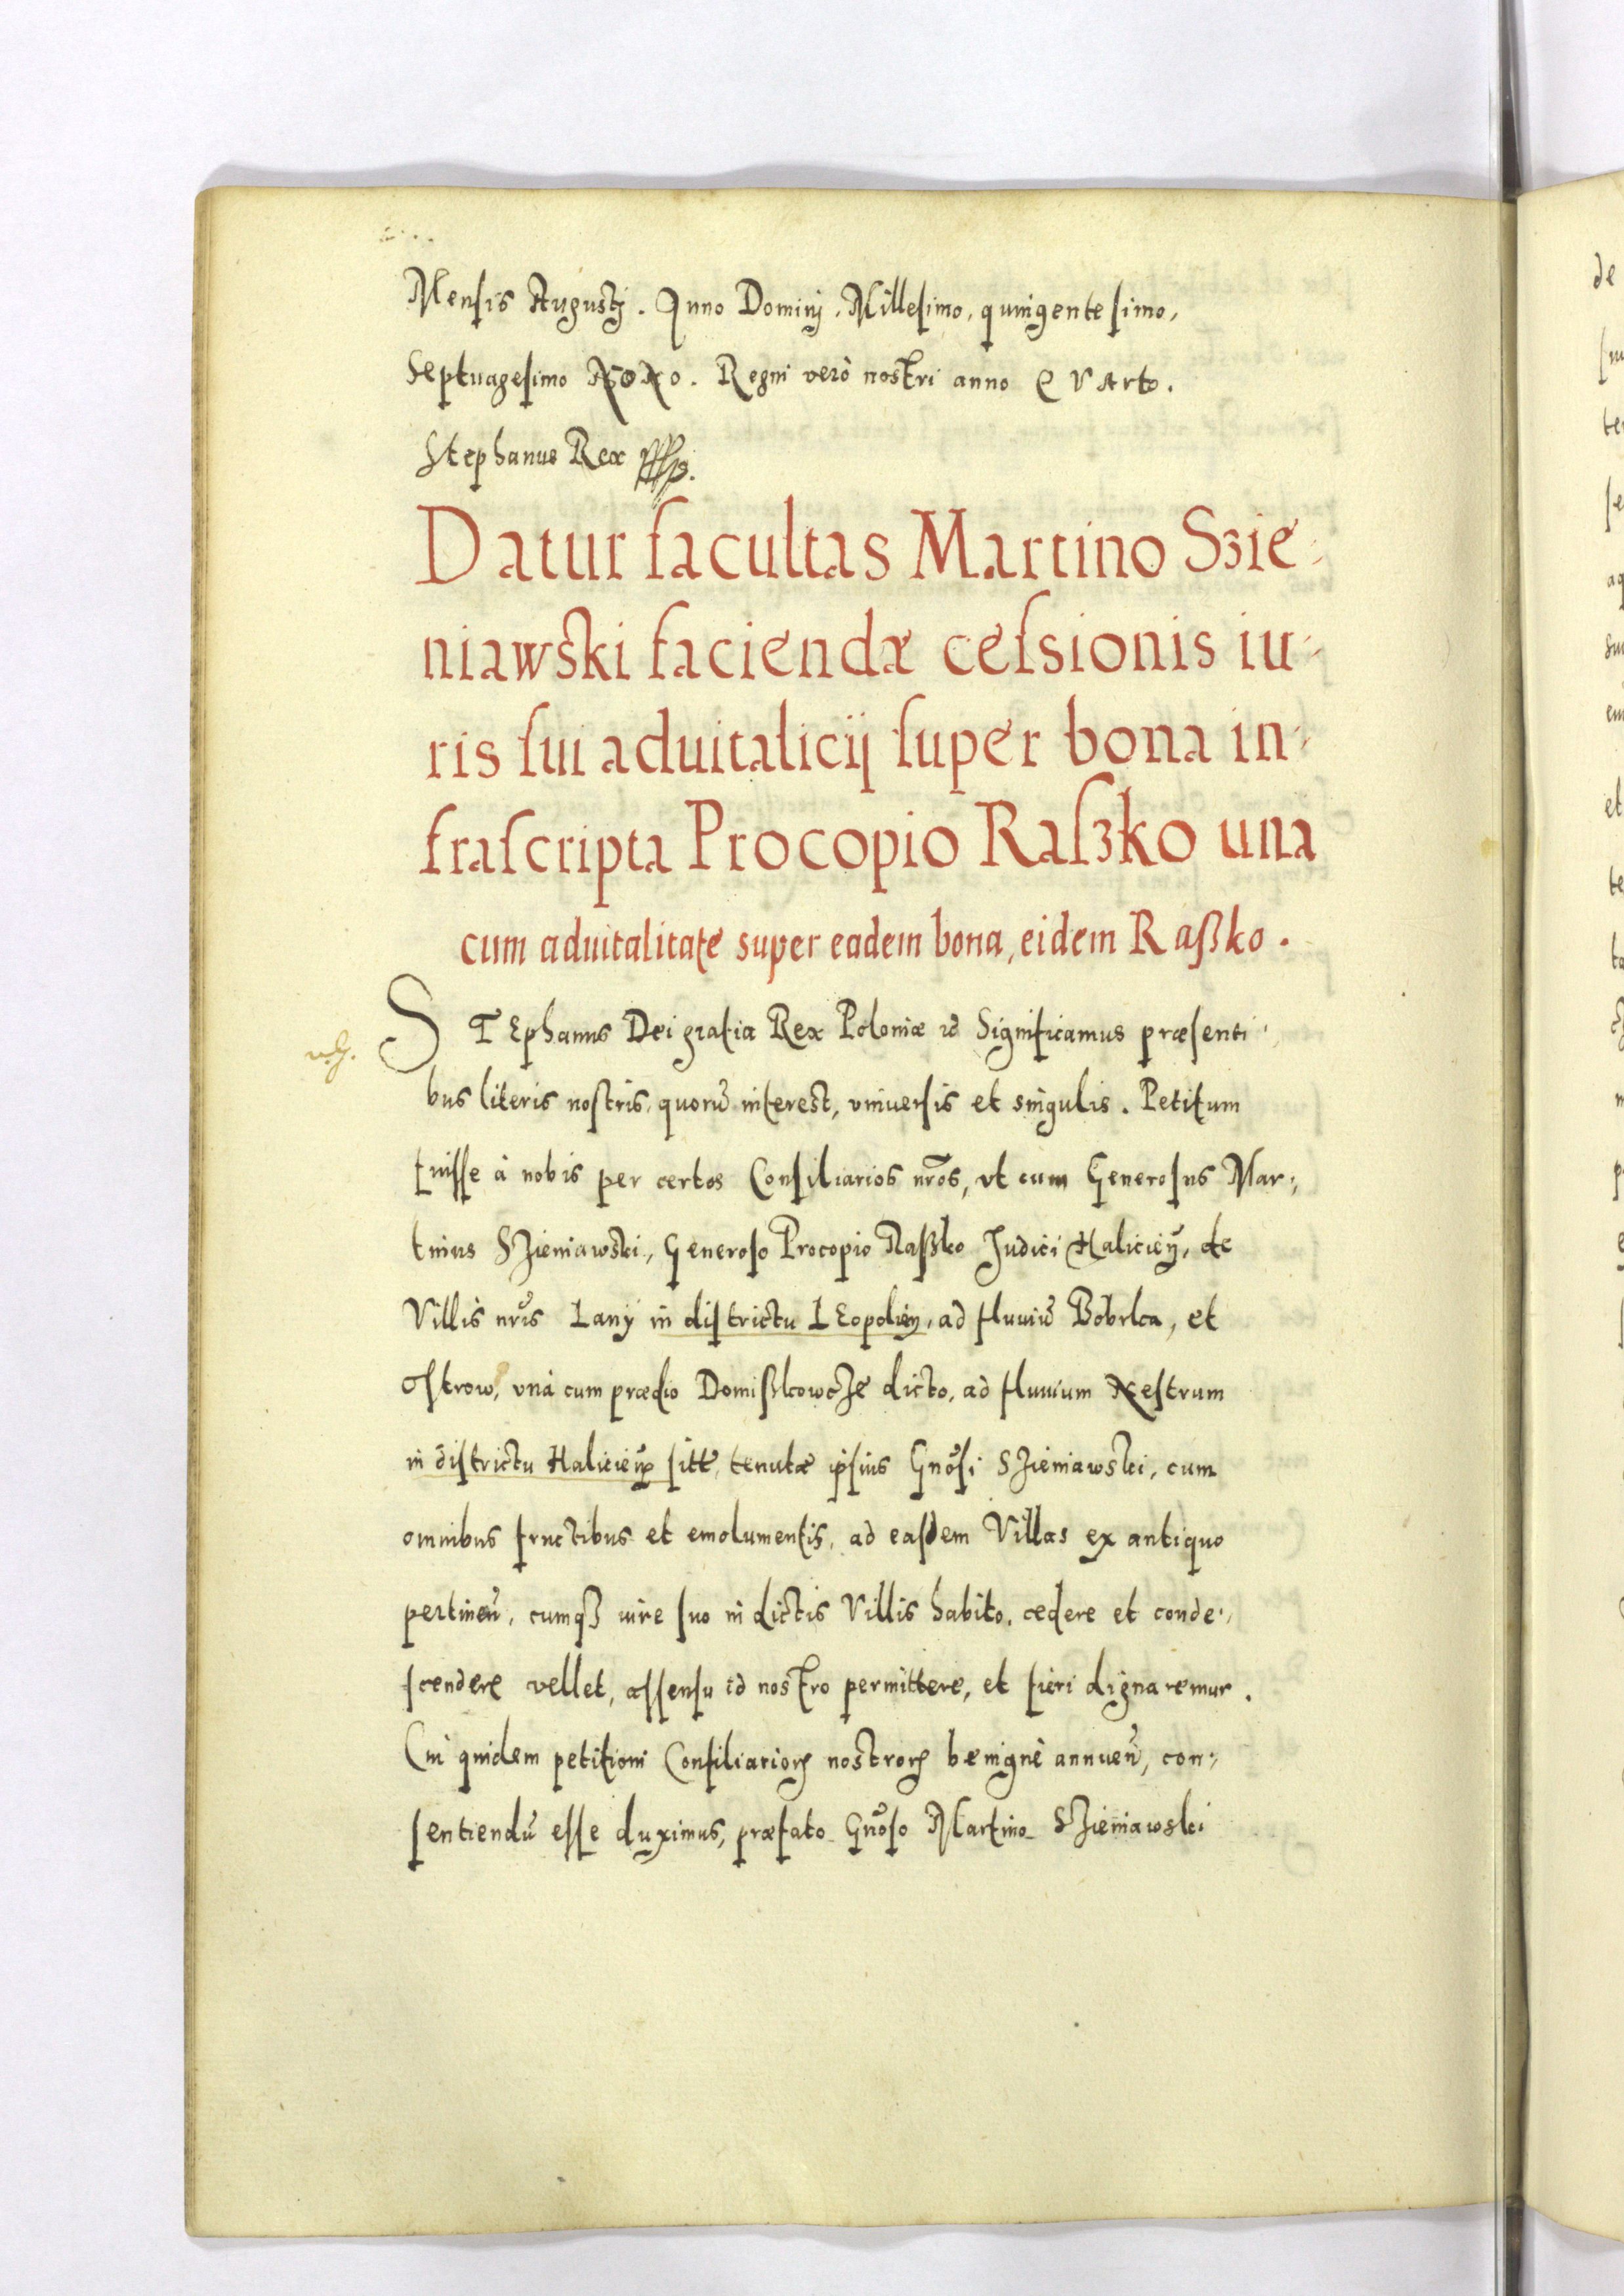 Mensis Augustj. Anno Dominj, Millesimo, quingentesimo,
Septuagesimo Nono. Regni verò nostri anno QVArto.
Stephanus Rex
Datur facultas Martino Szie-
niawski faciendæ cessionis iu-
ris sui aduitalicij super bona in-
frascripta Procopio Raszko una
cum aduitalitate super eadem bona, eidem Raßko.
STEphanus Dei gratia Rex Poloniæ Significamus præsenti
bus literis nostris, quorū interest, vniuersis et singulis. Petitum
fuisse à nobis per certos Consiliarios nrōs, vt cum Generosus Mar-
tinus SZieniawski, Generoso Procopio Raßko Judici Haliciēn, de
Villis nrīs Lany in districtu LEopoliēn, ad fluuiū Bobrka, et
Ostrow, vnà cum prædio DomißkowcZe dicto, ad fluuium Nestrum
in districtu Halicieñ sitt, tenutæ ipsius Gnōsi SZieniawski, cum
omnibus fructibus et emolumentis, ad easdem Villas ex antiquo
pertineñ, cumqꝫ iure suo in dictis Villis habito, cedere et conde-
scendere vellet, assensu id nostro permittere, et fieri dignaremur.
Cui quidem petitioni Consiliarioꝝ nostroꝝ benignè annueñ, con-
sentiendū esse duximus, præfato Gnōso Martino SZieniawski